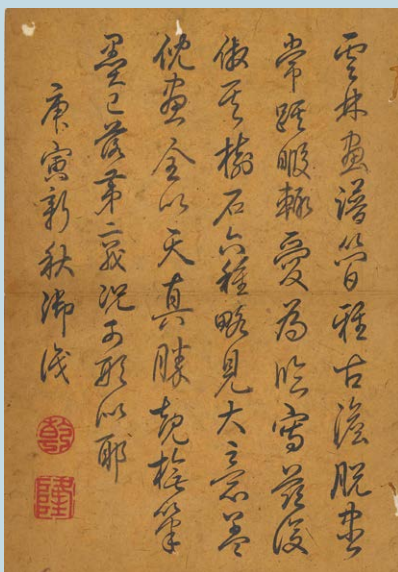 雲林畫譜簡雅古澹脫盡
常蹊暇輒愛為臨寫茲復
倣其樹石六種略見大意蓋
倪畫全以天真勝規橅筆
墨已落第二義況可形似耶
庚寅新秋御識
乾
隆